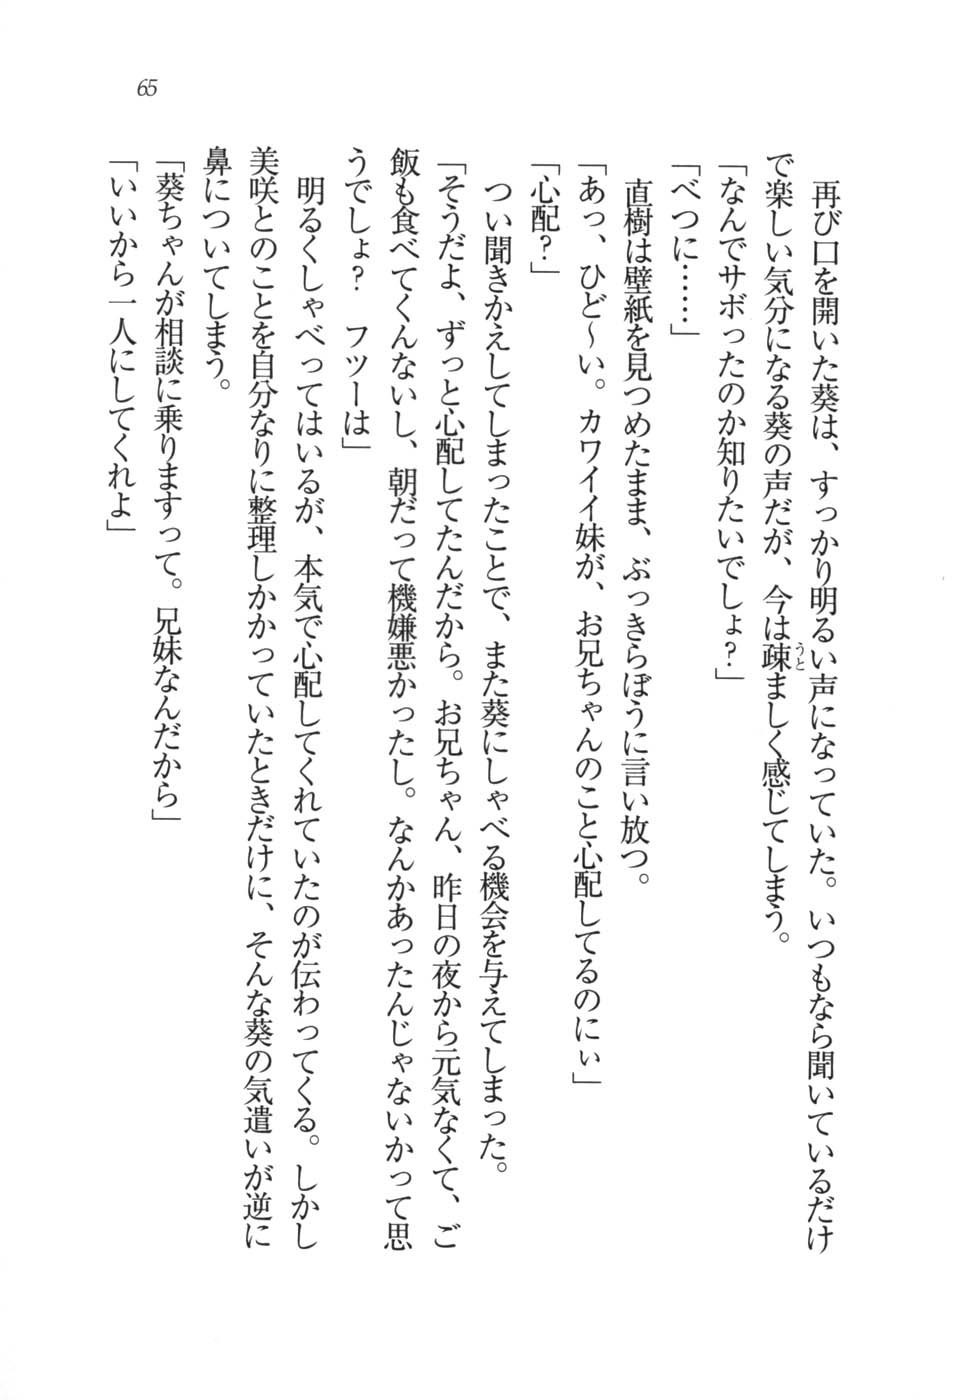 65
再び口を開いた葵は、すっかり明るい声になっていた。いつもなら聞いているだけ
で楽しい気分になる葵の声だが、今は疎ましく感じてしまう。
うと
「なんでサボったのか知りたいでしょ？」
「べつに……」
直樹は壁紙を見つめたまま、ぶっきらぼうに言い放つ。
「あっ、ひど〜い。カワイイ妹が、お兄ちゃんのこと心配してるのにぃ」
「心配？」
つい聞きかえしてしまったことで、また葵にしゃべる機会を与えてしまった。
「そうだよ、ずっと心配してたんだから。お兄ちゃん、昨日の夜から元気なくて、ご
飯も食べてくんないし、朝だって機嫌悪かったし。なんかあったんじゃないかって思
うでしょ？　フツーは」
明るくしゃべってはいるが、本気で心配してくれていたのが伝わってくる。しかし
美咲とのことを自分なりに整理しかかっていたときだけに、そんな葵の気遣いが逆に
鼻についてしまう。
「葵ちゃんが相談に乗りますって。兄妹なんだから」
「いいから一人にしてくれよ」